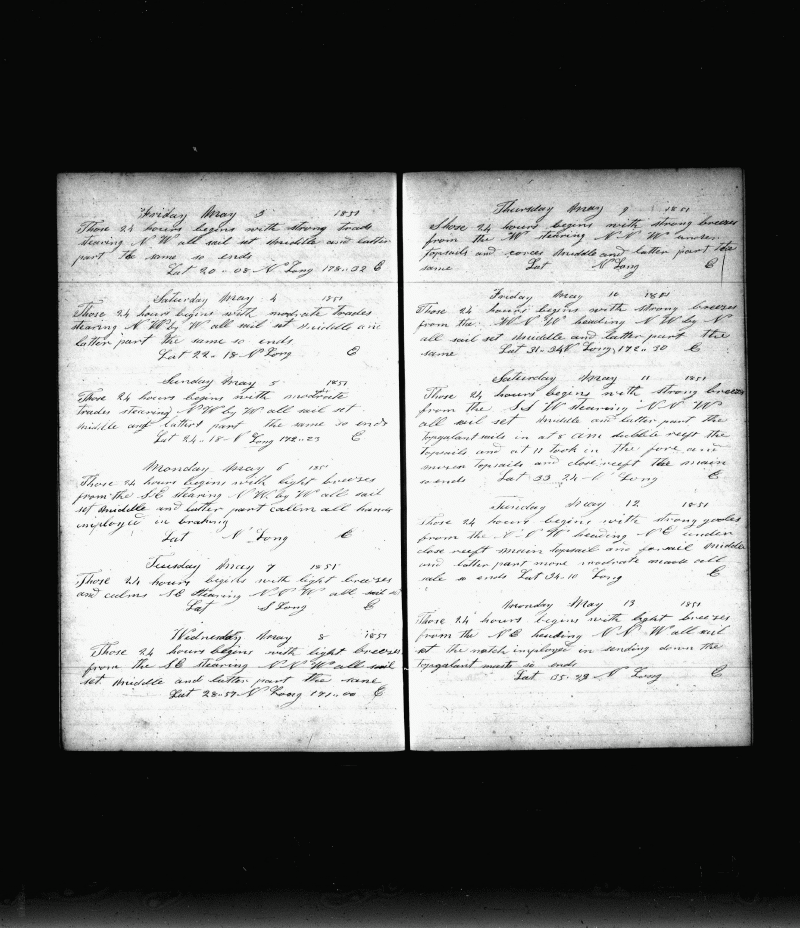 Friday May 3 1851
Those 24 hours begins with strong trads
stearing N W all sail set middle and latter
part the same so ends
Lat 20..08 N Long 178..32 E
Saturday May 4 1851
Those 24 hours begins with modrate trades
stearing N W by W all sail set middle and
latter part the same so ends
Lat 22..18 N Long E
Sunday May 5 1851
Those 24 hours begins with modrate
trades stearing N W by W all sail set
middle and latters part the same so ends
Lat 24..18 N Long 172..23 E
Monday May 6 1851
Those 24 hours begins with light breezes
from the SE stearing N W by W all sail
set middle and latter part calm all hands
imployed in braking
Lat N Long E
Tuesday May 7 1851
Those 24 hours begins with light breezes
and calms SE stearing N N W all sail
Lat S Long E
Wednesday May 8 1851
Those 24 hours begins with light breezes
from the SE stearing N N W all sail
set middle and latter part the same
Lat 28..57 N Long 171..00 E
Thursday May 9 1851
Those 24 hours begins with strong breezes
from the W stearing N N W under
topsails and corces middle and latter part the
same Lat N Long E
Friday May 10 1851
Those 24 hours begins with strong breezes
from the W N W heading N W by N
all sail set middle and latter part the
same Lat 31-34 N Long 172..30 E
Saturday May 11 1851
Those 24 hours begins with strong breezes
from the S S W stearing N N W
all sail set middle and latter part the
topgalant sails in at 8 am dubble reeft the
topsails and at 11 took in the fore and
misen topsails and close reeft the main
so ends Lat 33..24 N Long E
Sunday May 12 1851
Those 24 hours begins with strong gooles
from the N N W heading N E under
close reeft main topsail and forsail middle
and latter part more modrate made all
sale so ends Lat 34-10 Long E
Monday May 13 1851
Those 24 hours begins with light breezes
from the N E heading N N W all sail
set the watch imployed in sending down the
topgalant masts so ends
Lat 35..23 N Long E